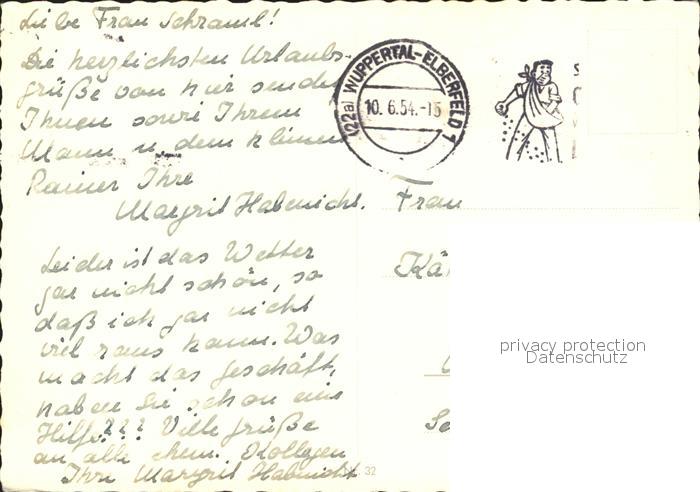 Liebe Frau Schraml!
Die herzlichsten Urlaubs-
grüße von hier sende
Ihnen sowie Ihrem
Mann u. dem kleinen
Rainer Ihre
Margrit Habenicht.
(22a) WUPPERTAL-ELBERFELD 1
10.6.54.-15
Frau
Kä
Leider ist das Wetter
gar nicht schön, so
daß ich gar nicht
viel raus kann. Was
macht das Geschäft,
haben Sie schon eine
Hilfe??? Viele Grüße
an alle ehem. Kollegen
Ihre Margrit Habenicht
32
privacy protection
Datenschutz